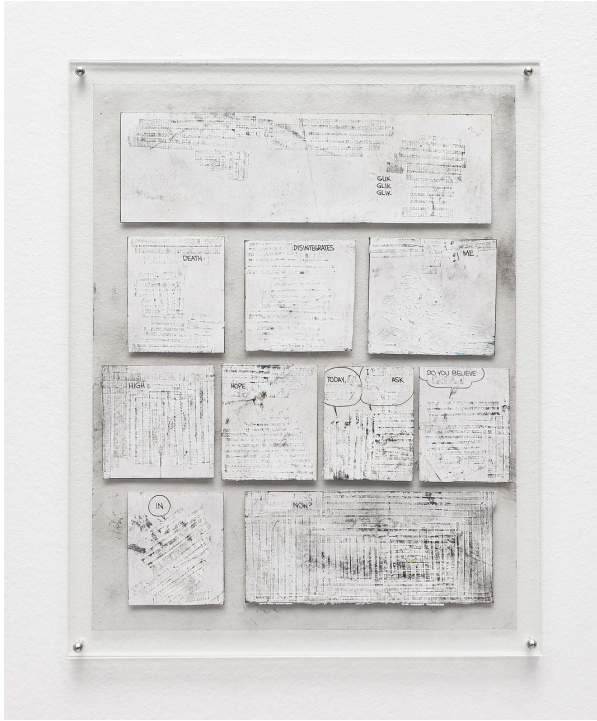 GLIK
GLIK
GLIK
DEATH
DISINTEGRATES
ME
HIGH
HOPE
TODAY,
ASK
DO YOU BELIEVE
IN
NOW?